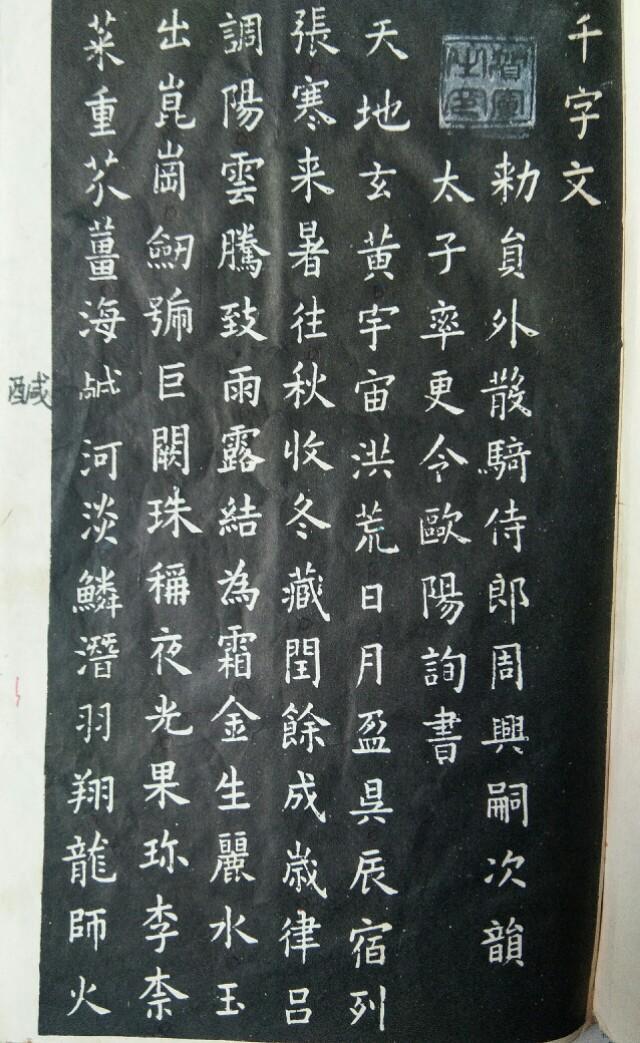 千字文
勑員外散騎侍郎周興嗣次韻
太子率更令歐陽詢書
天地玄黃宇宙洪荒日月盈昃辰宿列
張寒来暑往秋收冬藏閏餘成歲律吕
調陽雲騰致雨露結為霜金生麗水玉
出崑崗劒號巨闕珠稱夜光果珎李柰
菜重芥薑海鹹河淡鱗潛羽翔龍師火
醎